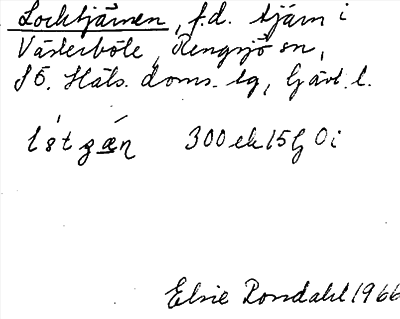 Locktjärnen, f.d. tjärn i
Västerböle, Rengsjö sn,
SÖ. Häls. doms. tg, Gävl. l.
300 ek 15 G 0 i
Elsie Rondahl 1966